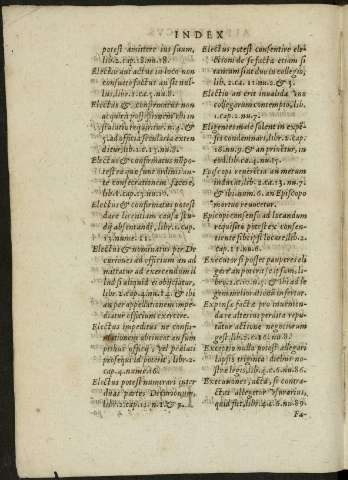 INDEX
potest amittere ius suum,
lib.2.cap.18.nu.18.
Electio aut actus in loco non
consueto factus an sit nul-
lus, libr.1.ca.5.nu.8.
Electus & confirmatus non
acquirit possessionem nisi in
stitutio requiritur. n.4. &
5. ad officia secularia exten
ditur, lib.1.c.13.nu.8.
Electus & confirmatus nil po-
test ex ijs quæ sunt ordinis an-
te consecrationem facere,
libr.1.cap.13.nu.10.
Electus & confirmatus potest
dare licentiam causa stu-
dij absentandi, libr.1.cap.
13. nume.11.
Electus & nominatus per De
curiones ad officium an ad
mittatur ad exercendum il
lud si aliquid ei objiciatur,
libr.2.cap.4.nu.14. & ibi
an per appellationem impe-
diatur officium exercere.
Electus impeditus ne confir-
mationem obtineat an sum
ptibus officij, vel prælati
prosequi id poterit, libr.2.
cap.4.nume.16.
Electus potest numerari inter
duas partes Decurionum,
libr.2.cap.12.n.1. & 3.
Electus potest consentire ele-
ctioni de se facta etiam si
tantum sint duo in collegio,
lib.2.cap.12.nu.2. & 3.
Electio an erit inualida
collegarum contemptio, lib.
1.cap.7.nu.7.
Eligentes male solent in expē-
sis condemnari, libr.2.cap.
16.nu.7. & an priuētur, in
eod.lib.ca.4.nu.15.
inducat, lib.2.ca.13.nu.7.
& ibi num.6. an Episcopo
mortuo reuocetur.
Episcopi consensus ad locandum
requisitus potest ex consen-
tiente sibi ipsi locare, lib.2.
cap.21.nu.6.
Executor si posset pauperes eli
gere an poterit se ipsum, li-
bro.2.ca.10.nu.5. & ibi ad le
genūmine an actū infertur.
Expensa facta pro inueniun-
dare alterius perdita repu-
tatur actione negotiorum
gest. lib.2.c.16.nu.8.
Executio nulla potest allegari
lapsis triginta diebus per no-
stras leges, lib.4.c.6.nu.86.
Executiones, acta, si contra-
ctus allegetur vsurarius,
quid fiet, lib.4.c.6.nu.89.
Fa-